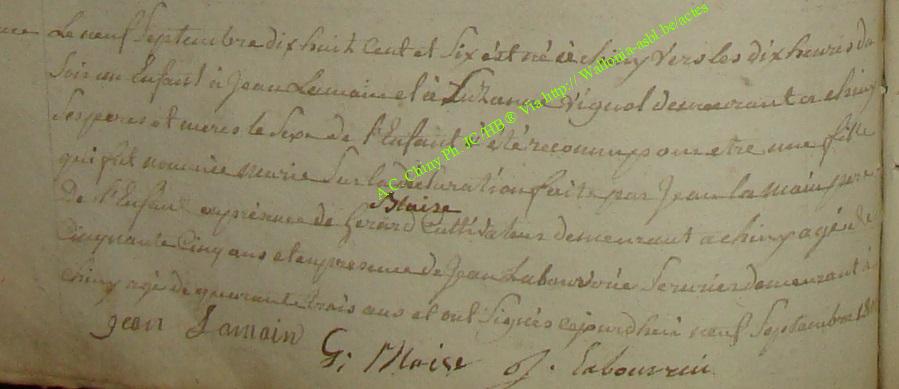 Le neuf Septembre dix huit Cent et Six est né à chiny vers les dix heures du
Soir un Enfant à Jean Lamain et à Suzanne Vignol demeurant a chiny
Ses peres et meres le Sexe de l'Enfant à été reconnu pour etre une fille
qui fut nommée marie Sur la déclaration faite par Jean lamain pere
Blaise
De l'Enfant en présence de Gerard Cultivateur demeurant a chiny agé de
Cinquante Cinq ans et en presence de Jean Laboursrie Serurier demeurant à
chiny agé de quarante trois ans et ont Signés cejourdhui neuf Septembre
jean Lamain
G; Blaise
J. Laboursrie
A.C. Chiny Ph JC-HB® Via http:// Wallonia-asbl.be/actes